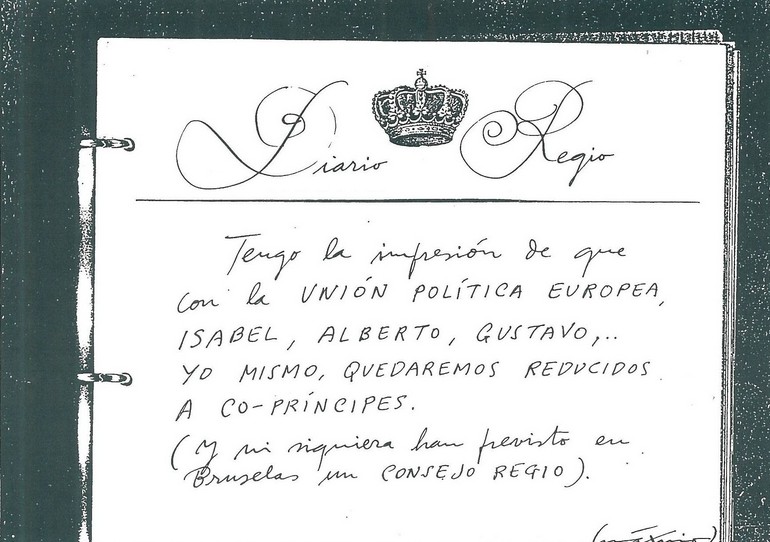 Diario Regio
Tengo la impresión de que
con la UNIÓN POLÍTICA EUROPEA,
ISABEL, ALBERTO, GUSTAVO,..
YO MISMO, QUEDAREMOS REDUCIDOS
A CO-PRÍNCIPES.
(Y ni siquiera han previsto en
Bruselas un CONSEJO REGIO).